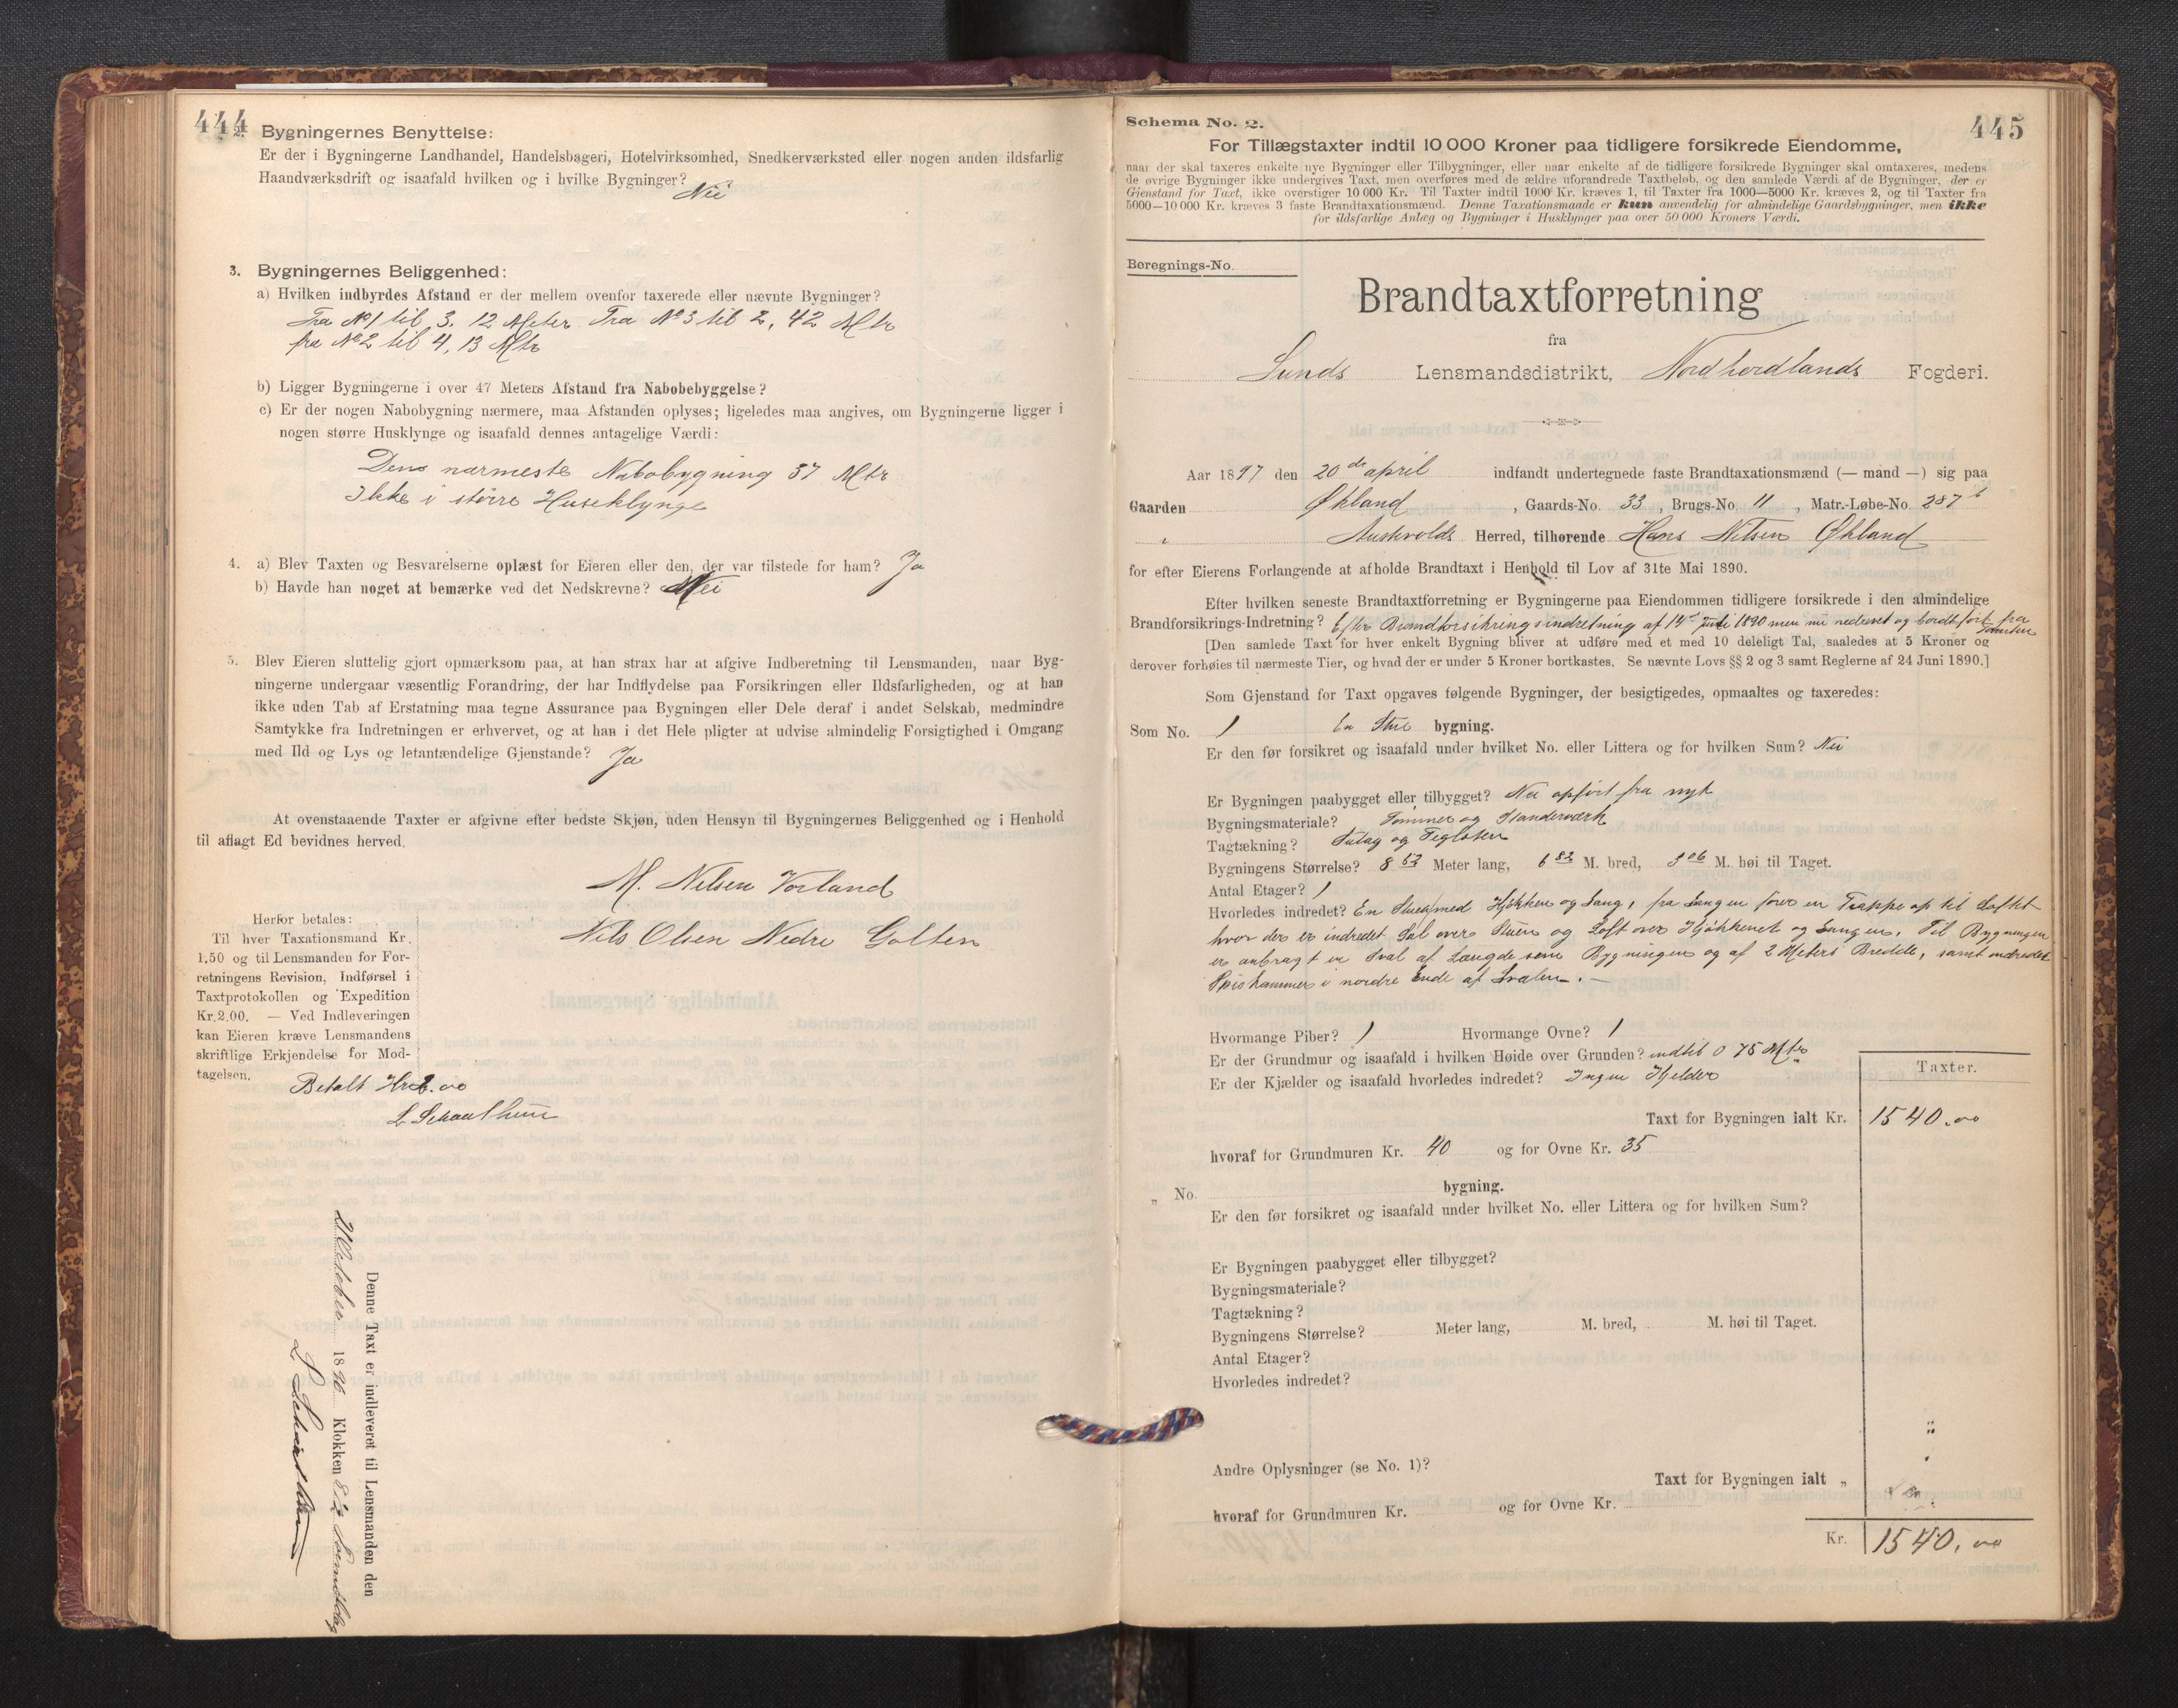 444
2. Bygningernes Benyttelse:
Er der i Bygningerne Landhandel, Handelsbageri, Hotelvirksomhed, Snedkerværksted eller nogen anden ildsfarlig
Haandværksdrift og isaafald hvilken og i hvilke Bygninger?
Nei
3. Bygningernes Beliggenhed:
a) Hvilken indbyrdes Afstand er der mellem ovenfor taxerede eller nævnte Bygninger?
Fra No 1 til 3, 12 Meter. Fra No 3 til 2, 42 Mtr
fra No 2 til 4, 13 Mtr
b) Ligger Bygningerne i over 47 Meters Afstand fra Nabobebyggelse?
c) Er der nogen Nabobygning nærmere, maa Afstanden oplyses; ligeledes maa angives, om Bygningerne ligger i
nogen større Husklynge og isaafald dennes antagelige Værdi:
Dens nærmeste Nabobygning 37 Mtr
Ikke i större Huseklynge
4. a) Blev Taxten og Besvarelserne oplæst for Eieren eller den, der var tilstede for ham? Ja
b) Havde han noget at bemærke ved det Nedskrevne? Nei
5. Blev Eieren sluttelig gjort opmærksom paa, at han strax har at afgive Indberetning til Lensmanden, naar Byg-
ningerne undergaar væsentlig Forandring, der har Indflydelse paa Forsikringen eller Ildsfarligheden, og at han
ikke uden Tab af Erstatning maa tegne Assurance paa Bygningen eller Dele deraf i andet Selskab, medmindre
Samtykke fra Indretningen er erhvervet, og at han i det Hele pligter at udvise almindelig Forsigtighed i Omgang
med Ild og Lys og letantændelige Gjenstande? Ja
At ovenstaaende Taxter er afgivne efter bedste Skjøn, uden Hensyn til Bygningernes Beliggenhed og i Henhold
til aflagt Ed bevidnes herved.
M. Nilsen Vorland
Nils Olsen Nedre Golten
Herfor betales:
Til hver Taxationsmand Kr.
1.50 og til Lensmanden for For-
retningens Revision, Indførsel i
Taxtprotokollen og Expedition
Kr. 2.00. — Ved Indleveringen
kan Eieren kræve Lensmandens
skriftlige Erkjendelse for Mod-
tagelsen.
Betalt Kr 2.00
L Schaathun
Denne Taxt er indleveret til Lensmanden den
21 October 1890 Klokken 8 1/2
L Schaathun
445
Schema No. 2.
For Tillægstaxter indtil 10 000 Kroner paa tidligere forsikrede Eiendomme,
naar der skal taxeres enkelte nye Bygninger eller Tilbygninger, eller naar enkelte af de tidligere forsikrede Bygninger skal omtaxeres, medens
de øvrige Bygninger ikke undergives Taxt, men overføres med de ældre uforandrede Taxtbeløb, og den samlede Værdi af de Bygninger, der er
Gjenstand for Taxt, ikke overstiger 10 000 Kr. Til Taxter indtil 1000 Kr. kræves 1, til Taxter fra 1000—5000 Kr. kræves 2, og til Taxter fra
5000—10 000 Kr. kræves 3 faste Brandtaxationsmænd. Denne Taxationsmaade er kun anvendelig for almindelige Gaardsbygninger, men ikke
for ildsfarlige Anlæg og Bygninger i Husklynger paa over 50 000 Kroners Værdi.
Beregnings-No.
Brandtaxtforretning
fra
Sunds Lensmandsdistrikt, Nordhordlands Fogderi.
Aar 1897 den 20de april indfandt undertegnede faste Brandtaxationsmænd (— mand —) sig paa
Gaarden Økland, Gaards-No. 33, Brugs-No. 11, Matr.-Løbe-No. 287b
Austvolds Herred, tilhørende Hans Nilsen Økland
for efter Eierens Forlangende at afholde Brandtaxt i Henhold til Lov af 31te Mai 1890.
Efter hvilken seneste Brandtaxtforretning er Bygningerne paa Eiendommen tidligere forsikrede i den almindelige
Brandforsikrings-Indretning? Efter Brandforsikringsindretning af 14de Juli 1890 men nu nedrevet og bortført fra Tomten
[Den samlede Taxt for hver enkelt Bygning bliver at udføre med et med 10 deleligt Tal, saaledes at 5 Kroner og
derover forhøies til nærmeste Tier, og hvad der er under 5 Kroner bortkastes. Se nævnte Lovs §§ 2 og 3 samt Reglerne af 24 Juni 1890.]
Som Gjenstand for Taxt opgaves følgende Bygninger, der besigtigedes, opmaaltes og taxeredes:
Som No. 1 En Stue bygning.
Er den før forsikret og isaafald under hvilket No. eller Littera og for hvilken Sum? Nei
Er Bygningen paabygget eller tilbygget? Nei opført fra nyt
Bygningsmateriale? Tømmer og Standerværk
Tagtækning? Sutag og Teglsten
Bygningens Størrelse? 8 63 Meter lang, 6 82 M. bred, 3 06 M. høi til Taget.
Antal Etager? 1
Hvorledes indredet? En Stue med Kjøkken og Gang, fra Gangen fører en Trappe op til Loftet
hvor der er indredet Sal over Stuen og Loft over Kjøkkenet og Gangen. Til Bygningen
er anbragt en Sval af Længde som Bygningen og af 2 Meters Bredde, samt indredet
Spiskammer i nordre Ende af Svalen.
Hvormange Piber? 1 Hvormange Ovne? 1
Er der Grundmur og isaafald i hvilken Høide over Grunden? indtil 0 75 Mtr
Er der Kjælder og isaafald hvorledes indredet? Ingen Kjelder
Taxter.
Taxt for Bygningen ialt Kr. 1540.00
hvoraf for Grundmuren Kr. 40 og for Ovne Kr. 35
„ No. bygning.
Er den før forsikret og isaafald under hvilket No. eller Littera og for hvilken Sum?
Er Bygningen paabygget eller tilbygget?
Bygningsmateriale?
Tagtækning?
Bygningens Størrelse? Meter lang, M. bred, M. høi til Taget.
Antal Etager?
Hvorledes indredet?
Andre Oplysninger (se No. 1)?
Taxt for Bygningen ialt „
hvoraf for Grundmuren Kr. og for Ovne Kr.
Kr. 1540.00